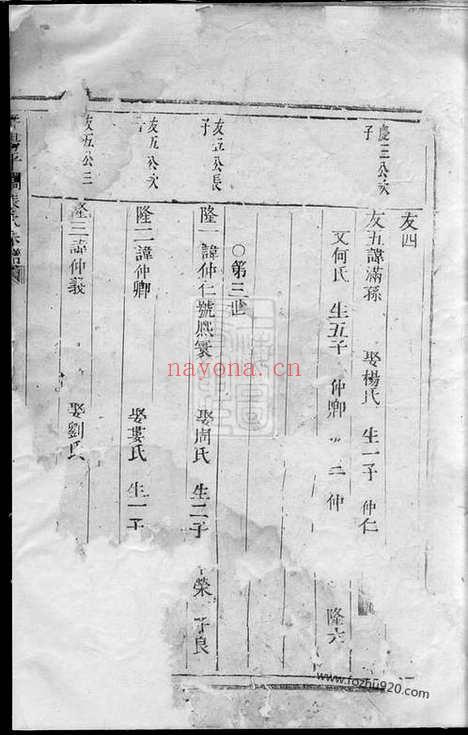 友四
慶三公次子
友五諱滿孫 娶楊氏 生一子 仲仁
又何氏 生五子 仲卿 仲 隆六
○第三世
友五公長子
隆一諱仲仁號 娶周氏 生二子 榮 子良
友五公次子
隆二諱仲卿 娶婁氏 生一子
友五公三
隆三諱仲義 娶劉氏
nayona.cn
www.fozhu920.com